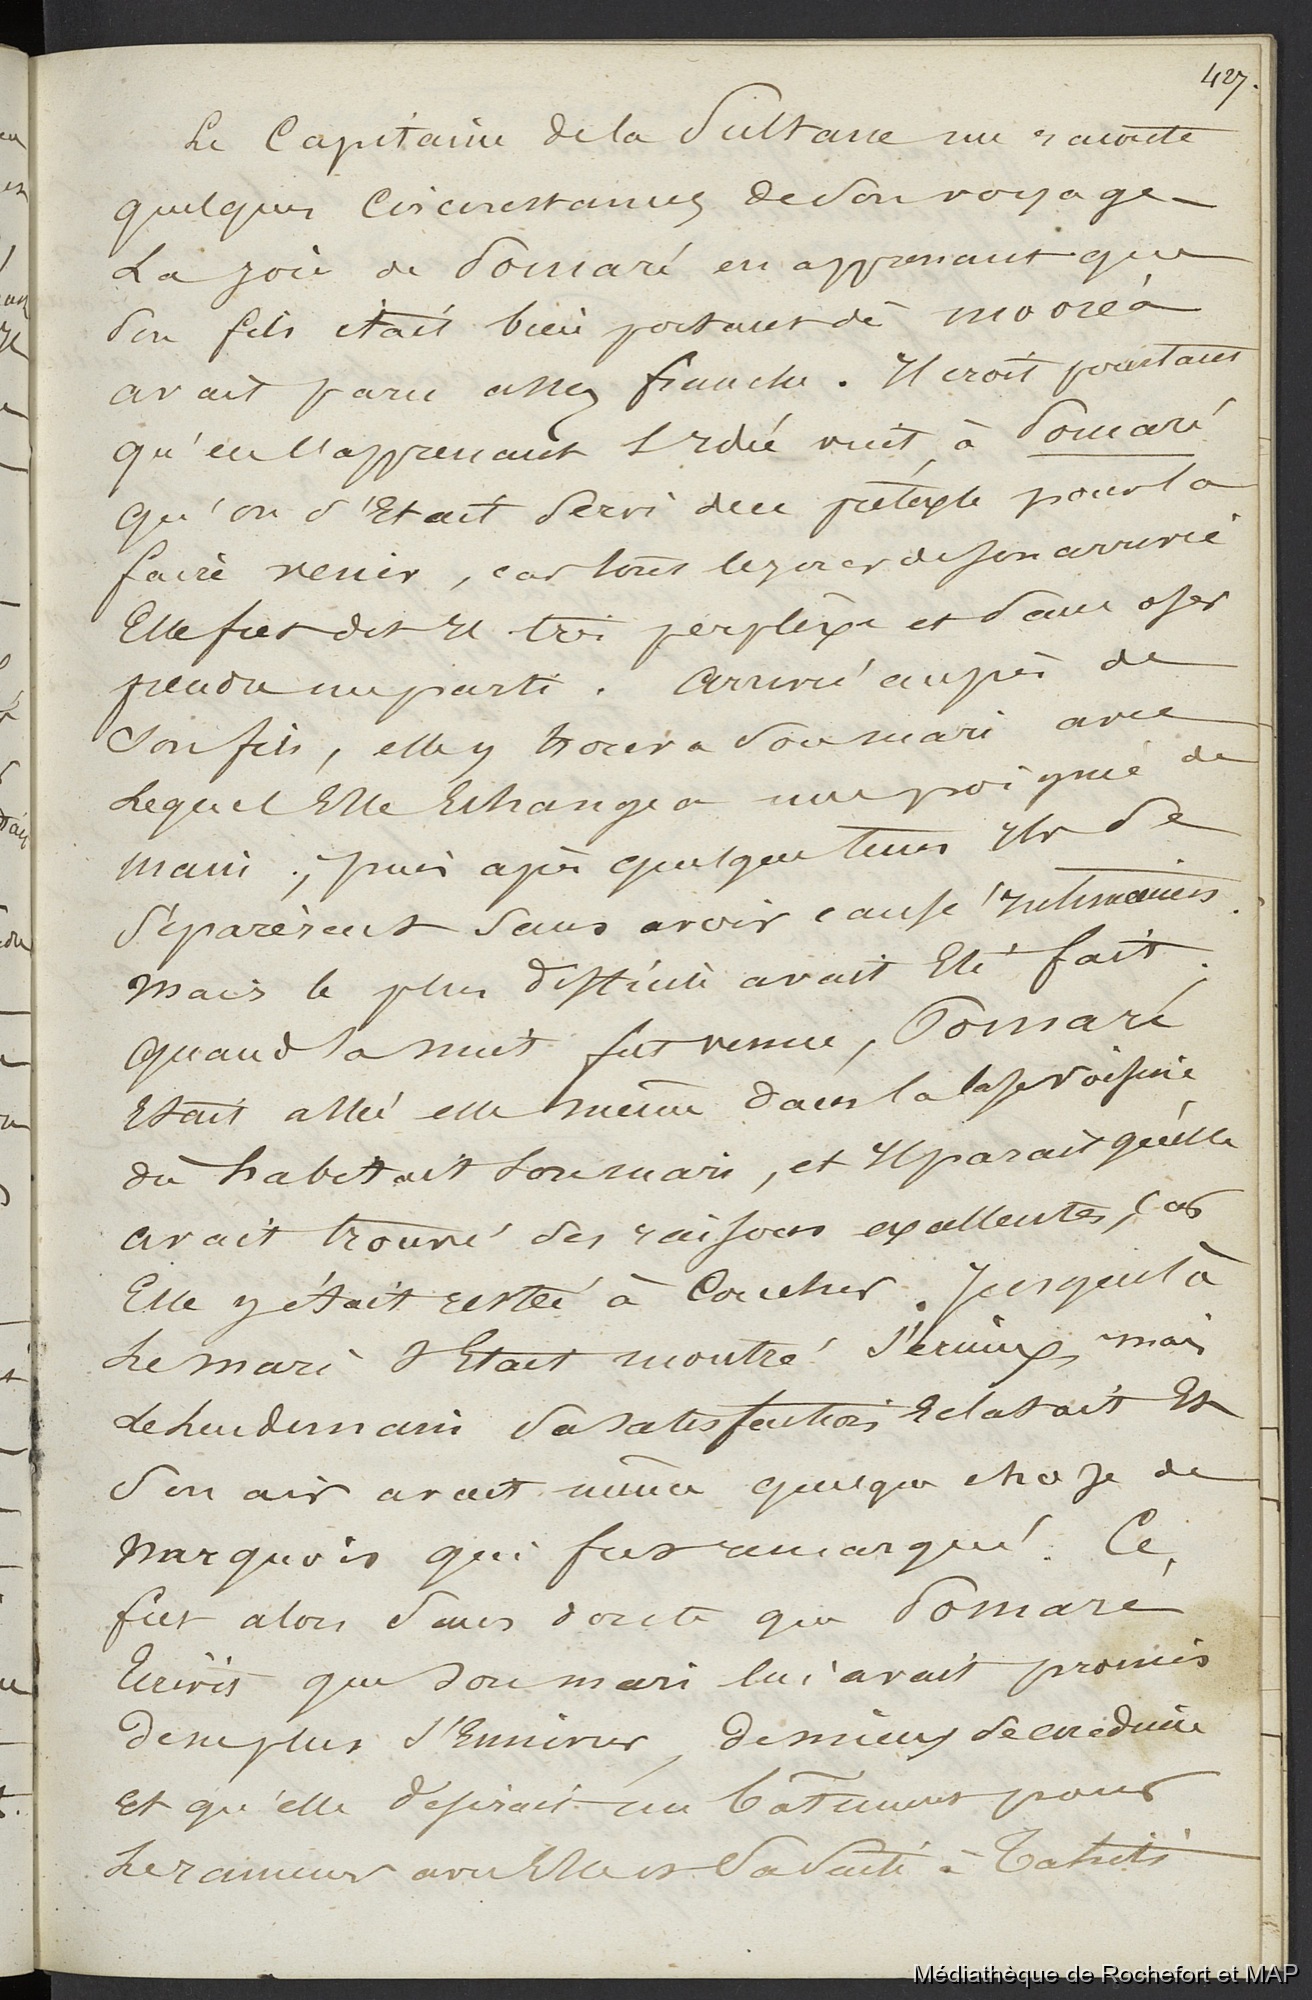 427.
Le Capitaine de la Sultane me raconte
quelques Circonstances de son voyage_
La joie de Pomaré en apprenant que
son fils était bien portant de mooréa
avait paru assez franche. Il croit pourtant
qu'en l'apprenant l'Idée vint à Pomaré
qu'on s'Etait servi d'un prétexte pour la
faire venir, car tous les jours de son arrivée
Elle fut dit Il très perplèxe et sans oser
prendre un parti. Arrivé auprès de
Son fils, elle y trouva son mari avec
Lequel Elle Echangea une poignée de
main ; puis après quelque tems Ils se
séparèrent sans avoir causé Intimement.
Mais le plus difficile avait Eté fait.
Quand la nuit fut venue, Pomaré
Etait allée elle même dans la Case voisine
où habitait son mari, et Il parait qu'elle
avait trouvé des raisons excellentes, car
Elle y était restée à Coucher. Jusque là
Le mari s'Etait montré sérieux, mais
Le Lendemain sa satisfaction Eclatait Et
Son air avait même quelque chose de
Narquois qui fut remarqué. Ce
fut alors sans doute que Pomaré
Ecrivit que son mari lui avait promis
De ne plus s'Ennivrer, De mieux se conduire
Et qu'elle désirait un bâtiment pour
Le ramener avec Elle et sa suite à Tahiti
Médiathèque de Rochefort et MAP